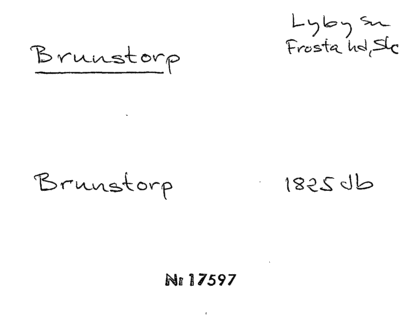 Brunstorp
Lyby sn
Frosta hd, Sk
Brunstorp
1825 db
Nr 17597